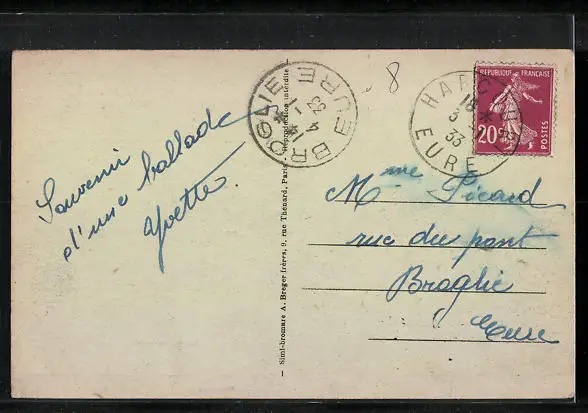 Souvenir
d'une ballade
Yvette
Simi-bromure A. Breger frères, 9, rue Thénard, Paris. Reproduction interdite
BROGLIE EURE
4 - 1
33
8
HARC
18 *
3
33
EURE
RÉPUBLIQUE FRANÇAISE
20c
POSTES
Mme Picard
rue du pont
Broglie
Eure